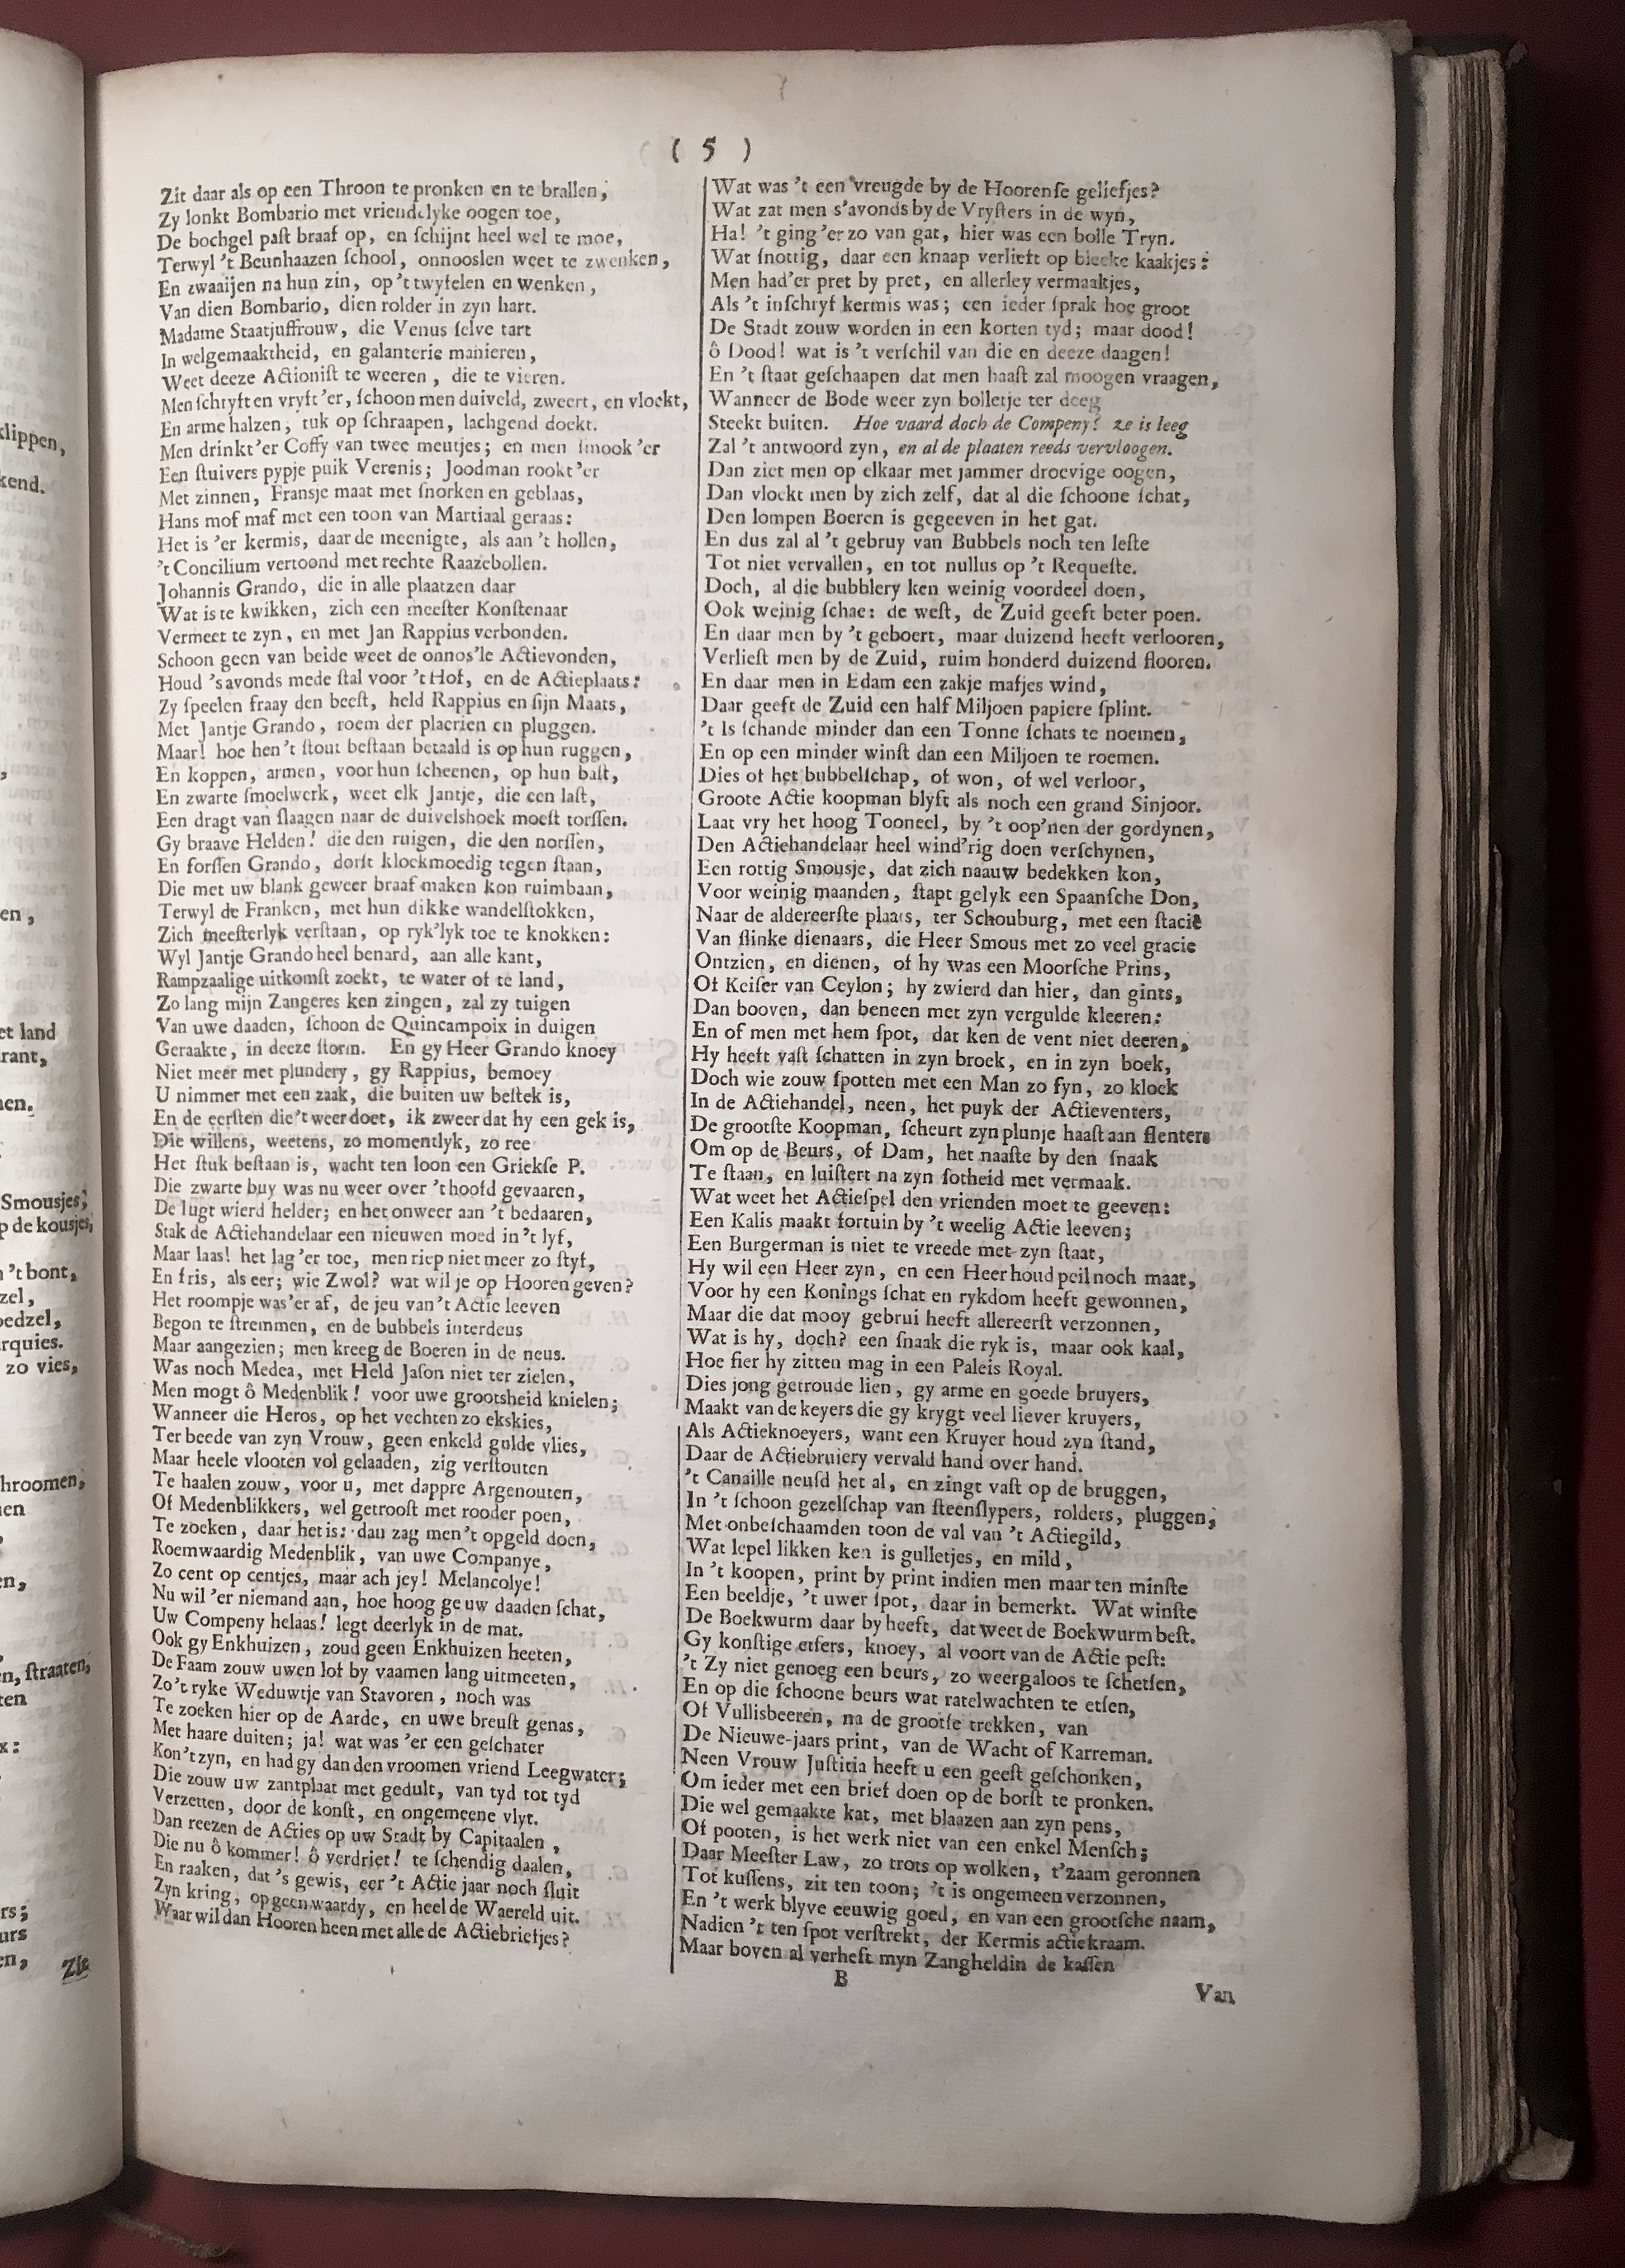 ( 5 )
Zit daar als op een Throon te pronken en te brallen,
Zy lonkt Bombario met vriendelyke oogen toe,
De bochgel past braaf op, en schijnt heel wel te moe,
Terwyl 't Beunhaazen school, onnooslen weet te zwenken,
En zwaaijen na hun zin, op 't twyfelen en wenken,
Van dien Bombario, dien rolder in zyn hart.
Madame Staatjuffrouw, die Venus selve tart
In welgemaaktheid, en galanterie manieren,
Weet deeze Actionist te weeren, die te vieren.
Men schryft en vryft 'er, schoon men duiveld, zweert, en vloekt,
En arme halzen, tuk op schraapen, lachgend doekt.
Men drinkt 'er Coffy van twee meutjes; en men smook 'er
Een stuivers pypje puik Verenis; Joodman rookt 'er
Met zinnen, Fransje maat met snorken en geblaas,
Hans mof maf met een toon van Martiaal geraas:
Het is 'er kermis, daar de meenigte, als aan 't hollen,
't Concilium vertoond met rechte Raazebollen.
Johannis Grando, die in alle plaatzen daar
Wat is te kwikken, zich een meester Konstenaar
Vermeet te zyn, en met Jan Rappius verbonden.
Schoon geen van beide weet de onnos'le Actievonden,
Houd 's avonds mede stal voor 't Hof, en de Actieplaats:
Zy speelen fraay den beest, held Rappius en sijn Maats,
Met Jantje Grando, roem der placrien en pluggen.
Maar! hoe hen't stout bestaan betaald is op hun ruggen,
En koppen, armen, voor hun scheenen, op hun bast,
En zwarte smoelwerk, weet elk Jantje, die een last,
Een dragt van slaagen naar de duivelshoek moest torssen.
Gy braave Helden! die den ruigen, die den norssen,
En forssen Grando, dorst kloekmoedig tegen staan,
Die met uw blank geweer braaf maken kon ruimbaan,
Terwyl de Franken, met hun dikke wandelstokken,
Zich meesterlyk verstaan, op ryk'lyk toe te knokken:
Wyl Jantje Grando heel benard, aan alle kant,
Rampzaalige uitkomst zoekt, te water of te land,
Zo lang mijn Zangeres ken zingen, zal zy tuigen
Van uwe daaden, schoon de Quincampoix in duigen
Geraakte, in deeze storm. En gy Heer Grando knoey
Niet meer met plundery, gy Rappius, bemoey
U nimmer met een zaak, die buiten uw bestek is,
En de eersten die 't weer doet, ik zweer dat hy een gek is,
Die willens, weetens, zo momentlyk, zo ree
Het stuk bestaan is, wacht ten loon een Griekse P.
Die zwarte buy was nu weer over 't hoofd gevaaren,
De lugt wierd helder; en het onweer aan 't bedaaren,
Stak de Actiehandelaar een nieuwen moed in 't lyf,
Maar laas! het lag 'er toe, men riep niet meer zo styf,
En fris, als eer; wie Zwol? wat wil je op Hooren geven?
Het roompje was 'er af, de jeu van 't Actie leeven
Begon te stremmen, en de bubbels interdeus
Maar aangezien; men kreeg de Boeren in de neus.
Was noch Medea, met Held Jason niet ter zielen,
Men mogt ô Medenblik! voor uwe grootsheid knielen;
Wanneer die Heros, op het vechten zo ekskies,
Ter beede van zyn Vrouw, geen enkeld gulde vlies,
Maar heele vlooten vol gelaaden, zig verstouten
Te haalen zouw, voor u, met dappre Argenouten,
Of Medenblikkers, wel getroost met rooder poen,
Te zoeken, daar het is: dan zag men 't opgeld doen,
Roemwaardig Medenblik, van uwe Companye,
Zo cent op centjes, maar ach jey! Melancolye!
Nu wil 'er niemand aan, hoe hoog ge uw daaden schat,
Uw Compeny helaas! legt deerlyk in de mat.
Ook gy Enkhuizen, zoud geen Enkhuizen heeten,
De Faam zouw uwen lof by vaamen lang uitmeeten,
Zo 't ryke Weduwtje van Stavoren, noch was
Te zoeken hier op de Aarde, en uwe breust genas,
Met haare duiten; ja! wat was 'er een geschater
Kon 't zyn, en had gy dan den vroomen vriend Leegwater;
Die zouw uw zantplaat met gedult, van tyd tot tyd
Verzetten, door de konst, en ongemeene vlyt.
Dan reezen de Acties op uw Stadt by Capitaalen,
Die nu ô kommer! ô verdriet! te schendig daalen,
En raaken, dat 's gewis, eer 't Actie jaar noch sluit
Zyn kring, op geen waardy, en heel de Waereld uit.
Waar wil dan Hooren heen met alle de Actiebriefjes?
Wat was 't een vreugde by de Hoorense geliefjes?
Wat zat men s'avonds by de Vrysters in de wyn,
Ha! 't ging 'er zo van gat, hier was een bolle Tryn.
Wat snottig, daar een knaap verlieft op bleeke kaakjes:
Men had 'er pret by pret, en allerley vermaakjes,
Als 't inschryf kermis was; een ieder sprak hoe groot
De Stadt zouw worden in een korten tyd; maar dood!
ô Dood! wat is 't verschil van die en deeze daagen!
En 't staat geschaapen dat men haast zal moogen vraagen,
Wanneer de Bode weer zyn bolletje ter deeg
Steekt buiten. Hoe vaard doch de Compeny? ze is leeg
Zal 't antwoord zyn, en al de plaaten reeds vervloogen.
Dan ziet men op elkaar met jammer droevige oogen,
Dan vloekt men by zich zelf, dat al die schoone schat,
Den lompen Boeren is gegeeven in het gat.
En dus zal al 't gebruy van Bubbels noch ten leste
Tot niet vervallen, en tot nullus op 't Requeste.
Doch, al die bubblery ken weinig voordeel doen,
Ook weinig schae: de west, de Zuid geeft beter poen.
En daar men by 't geboert, maar duizend heeft verlooren,
Verliest men by de Zuid, ruim honderd duizend flooren.
En daar men in Edam een zakje mafjes wind,
Daar geeft de Zuid een half Miljoen papiere splint.
't Is schande minder dan een Tonne schats te noemen,
En op een minder winst dan een Miljoen te roemen.
Dies of het bubbelschap, of won, of wel verloor,
Groote Actie koopman blyft als noch een grand Sinjoor.
Laat vry het hoog Tooneel, by 't oop'nen der gordynen,
Den Actiehandelaar heel wind'rig doen verschynen,
Een rottig Smousje, dat zich naauw bedekken kon,
Voor weinig maanden, stapt gelyk een Spaansche Don,
Naar de aldereerste plaats, ter Schouburg, met een stacie
Van slinke dienaars, die Heer Smous met zo veel gracie
Ontzien, en dienen, of hy was een Moorsche Prins,
Of Keiser van Ceylon; hy zwierd dan hier, dan gints,
Dan booven, dan beneen met zyn vergulde kleeren:
En of men met hem spot, dat ken de vent niet deeren,
Hy heeft vast schatten in zyn broek, en in zyn boek,
Doch wie zouw spotten met een Man zo fyn, zo kloek
In de Actiehandel, neen, het puyk der Actieventers,
De grootste Koopman, scheurt zyn plunje haast aan flenters
Om op de Beurs, of Dam, het naaste by den snaak
Te staan, en luistert na zyn sotheid met vermaak.
Wat weet het Actiespel den vrienden moet te geeven:
Een Kalis maakt fortuin by 't weelig Actie leeven;
Een Burgerman is niet te vreede met zyn staat,
Hy wil een Heer zyn, en een Heer houd peil noch maat,
Voor hy een Konings schat en rykdom heeft gewonnen,
Maar die dat mooy gebrui heeft allereerst verzonnen,
Wat is hy, doch? een snaak die ryk is, maar ook kaal,
Hoe fier hy zitten mag in een Paleis Royal.
Dies jong getroude lien, gy arme en goede bruyers,
Maakt van de keyers die gy krygt veel liever kruyers,
Als Actieknoeyers, want een Kruyer houd zyn stand,
Daar de Actiebruiery vervald hand over hand.
't Canaille neusd het al, en zingt vast op de bruggen,
In 't schoon gezelschap van steenslypers, rolders, pluggen,
Met onbeschaamden toon de val van 't Actiegild,
Wat lepel likken ken is gulletjes, en mild,
In 't koopen, print by print indien men maar ten minste
Een beeldje, 't uwer spot, daar in bemerkt. Wat winste
De Boekwurm daar by heeft, dat weet de Boekwurm best.
Gy konstige etsers, knoey, al voort van de Actie pest:
't Zy niet genoeg een beurs, zo weergaloos te schetsen,
En op die schoone beurs wat ratelwachten te etsen,
Of Vullisbeeren, na de grootse trekken, van
De Nieuwe-jaars print, van de Wacht of Karreman.
Neen Vrouw Justitia heeft u een geest geschonken,
Om ieder met een brief doen op de borst te pronken.
Die wel gemaakte kat, met blaazen aan zyn pens,
Of pooten, is het werk niet van een enkel Mensch;
Daar Meester Law, zo trots op wolken, t'zaam geronnen
Tot kussens, zit ten toon; 't is ongemeen verzonnen,
En 't werk blyve eeuwig goed, en van een grootsche naam,
Nadien 't ten spot verstrekt, der Kermis actiekraam.
Maar boven al verheft myn Zangheldin de kassen
B
Van
klippen,
kend.
en,
et land
rant,
en.
Smousjes;
p de kousjes,
't bont,
zel,
oedzel,
rquies.
zo vies,
hroomen,
en
en,
n, straaten,
ten
x:
rs;
urs
en,
Zit